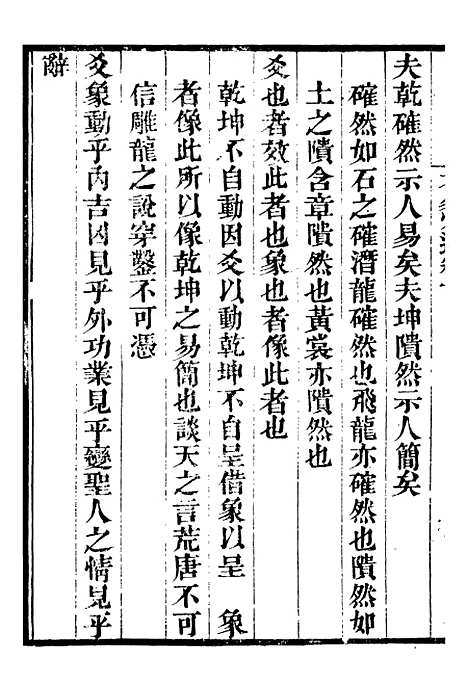 夫乾確然示人易矣夫坤隤然示人簡矣
確然如石之確潛龍確然也飛龍亦確然也隤然如
土之隤含章隤然也黃裳亦隤然也
爻也者效此者也象也者像此者也
乾坤不自動因爻以動乾坤不自呈借象以呈 象
者像此所以像乾坤之易簡也談天之言荒唐不可
信雕龍之說穿鑿不可憑
爻象動乎內吉凶見乎外功業見乎變聖人之情見乎
辭